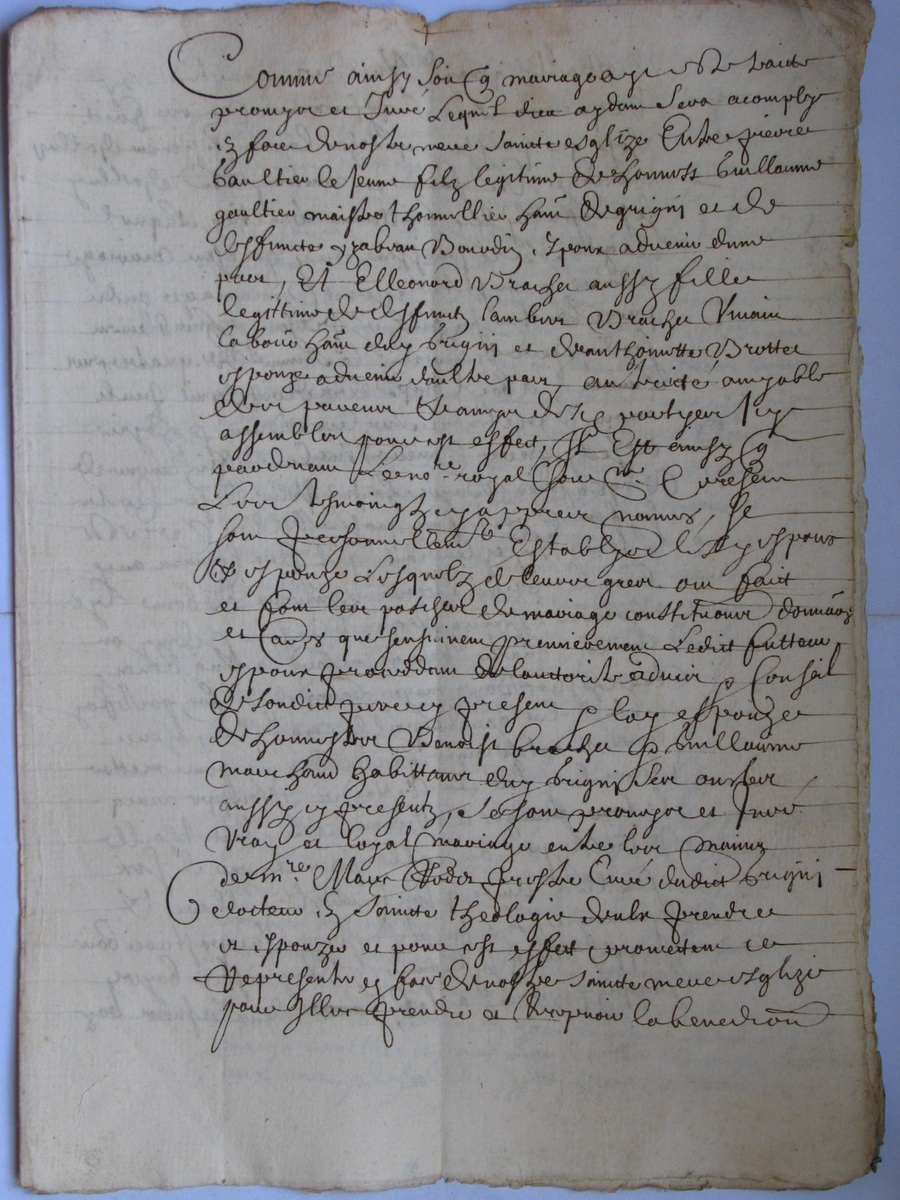 Comme ainsy soit q mariage aye este traicte
promys et Juré Lequel dieu aydant sera acomply
en face de nostre mere saincte esglize Entre pierre
gaultier le Jeune filz legitime de honneste guillaume
gaultier maistre thonnellier hant de grigni et de
deffuncte yzabeau Bourdin, espoux advenir d'une
part, Et Elleonord Brachet aussy fille
legittime de deffunct Lambert Brachet Vivant
labour hant dudy grigni et d'anthoinette Brottet
espouze advenir d'aultre part, au traicté amyable
de per parens et amys des partyes icy
assemblés pour cest effect, Est ainsy q
pardevant Le no.re royal soubz.né Et presens
Les tesmoingtz cy appres nommés, se
sont personnellement Establys lesdy espoux
& espouze Lesquelz de leur gré ont faict
et font les pasches de mariage constitutions donnaõns
et Causes que s'ensuivent premierement Ledict futteur
espoux proceddant de l'auctorité advis & Conseil
de sondict pere cy present & lad espouze
de honnestes Benoist brachet & guillaume
marchand habittants dudy grigni
aussy cy presentz, se sont promys et Juré
vray et loyal mariage entre les mains
de m.re Marc prestre Curé dudict grigni
docteur en saincte theologie d'eulx prendre
et espouzer et pour cest effect promettent se
Represente en face de nostre saincte mere esglize
pour Illec prendre et Recepvoir la benediõn